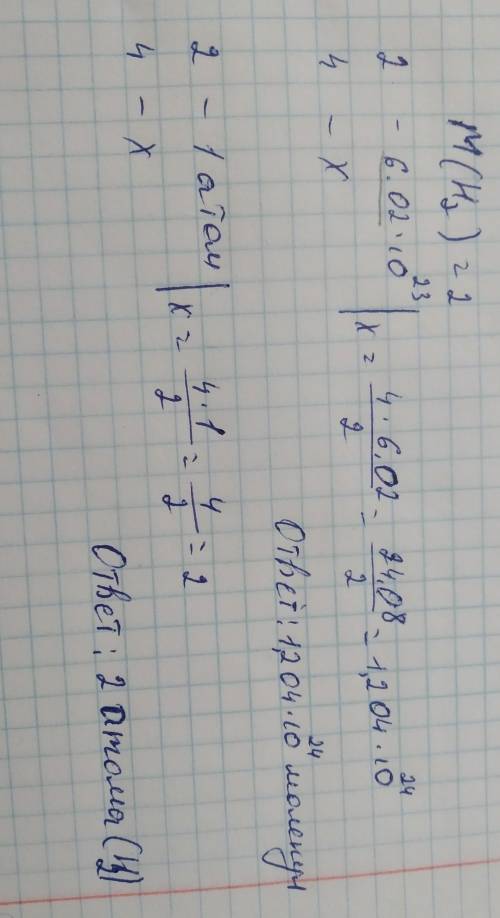 M(H₂) = 2
2 - 6.02·10²³ | x = 4·6,02/2 = 24,08/2 = 1,204·10²⁴
4 - x
Ответ: 1,204·10²⁴ молекул
2 - 1 атом | x = 4·1/2 = 4/2 = 2
4 - x
Ответ: 2 атома (H₂)